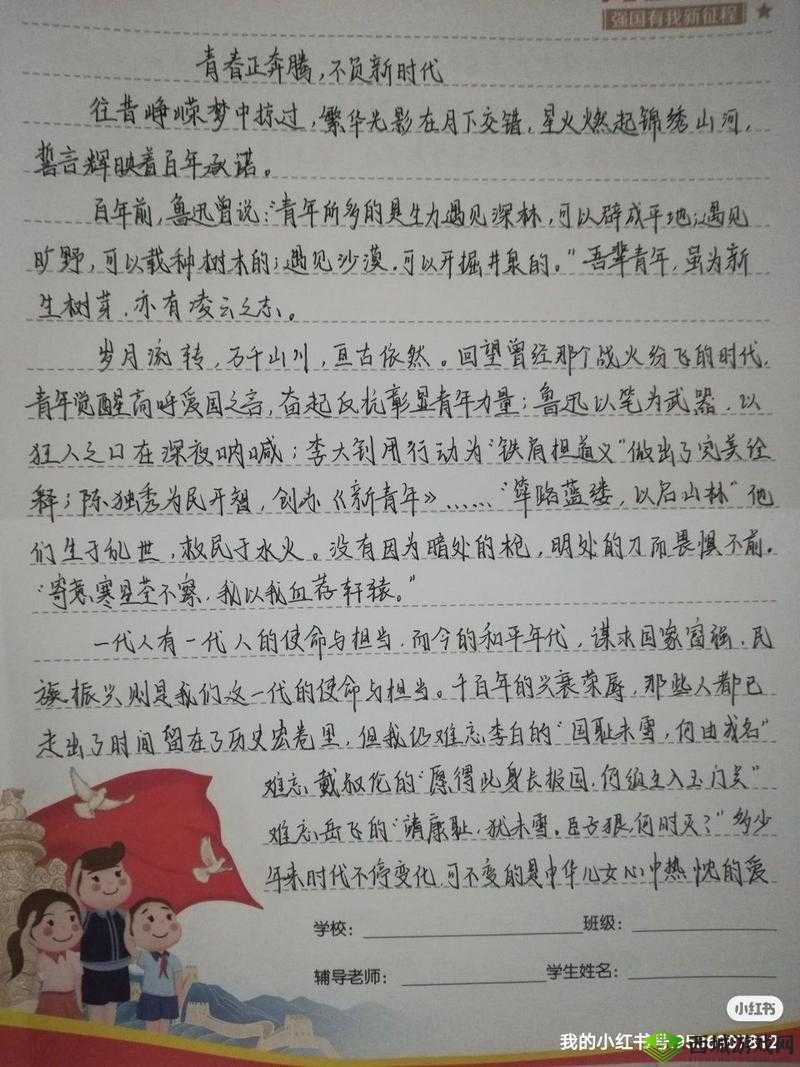 强国有我新征程
青春正奔腾，不负新时代
往昔峥嵘梦中掠过，繁华光影在月下交错，星火燃起锦绣山河，
誓言辉映着百年承诺。
百年前，鲁迅曾说：“青年所多的是生力遇见深林，可以辟成平地；遇见
旷野，可以栽种树木的；遇见沙漠，可以开掘井泉的。”吾辈青年，虽为新
生树芽，亦有凌云之志。
岁月流转，万千山川，亘古依然。回望曾经那个战火纷飞的时代，
青年觉醒高呼爱国之言，奋起反抗彰显青年力量；鲁迅以笔为武器，以
狂人之口在深夜呐喊；李大钊用行动为“铁肩担道义”做出了完美诠
释；陈独秀为民开智，创办《新青年》……“筚路蓝缕，以启山林”他
们生于乱世，救民于水火。没有因为暗处的枪，明处的刀而畏惧不前。
“寄意寒星荃不察，我以我血荐轩辕。”
一代人有一代人的使命与担当，而今的和平年代，谋求国家富强，民
族振兴则是我们这一代的使命与担当。千百年的兴衰荣辱，那些人都已
走出了时间留在了历史宏卷里，但我仍难忘李白的“国耻未雪，何由成名”
难忘戴叔伦的“愿得此身长报国，何须生入玉门关”
难忘岳飞的“靖康耻，犹未雪。臣子恨，何时灭？”多少
年来时代不停变化，可不变的是中华儿女心中热忱的爱
学校： 班级：
辅导老师： 学生姓名：
小红书
我的小红书号
西城游戏网